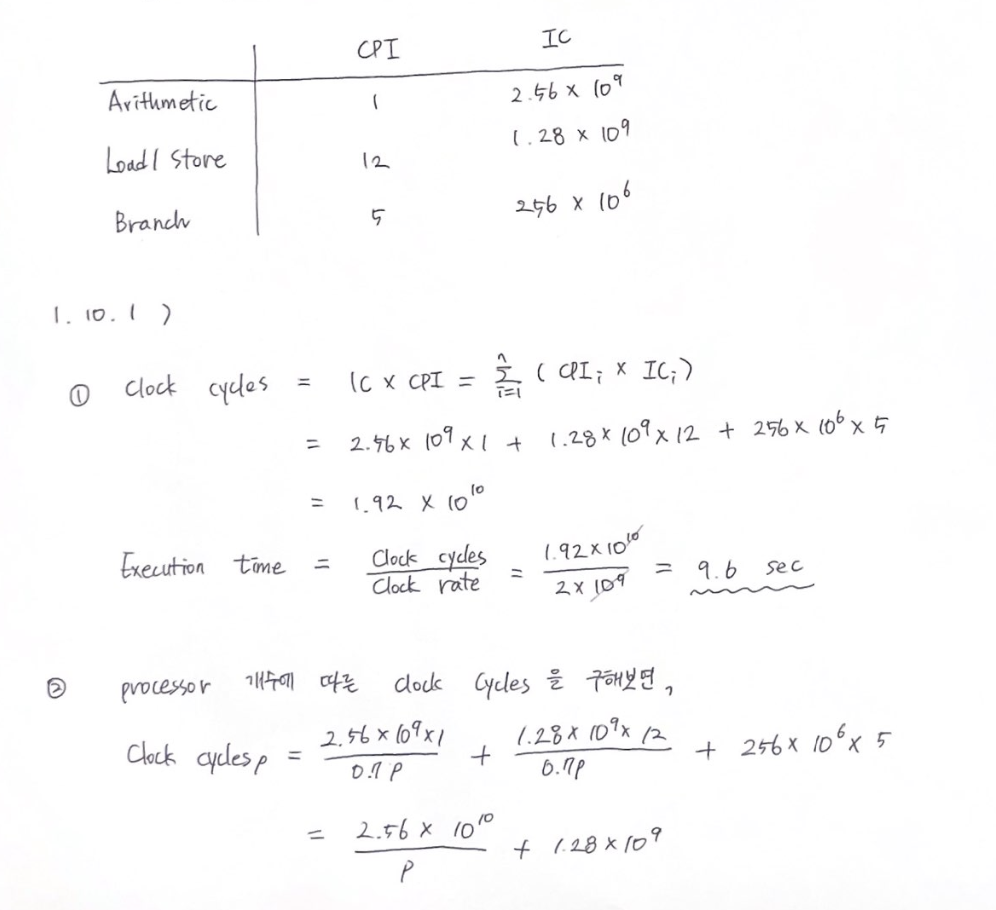 CPI IC
Arithmetic 1 2.56 × 10⁹
Load / Store 12 1.28 × 10⁹
Branch 5 256 × 10⁶
1.10.1 )
① Clock cycles = IC × CPI = Σⁿᵢ₌₁ ( CPIᵢ × ICᵢ )
= 2.56 × 10⁹ × 1 + 1.28 × 10⁹ × 12 + 256 × 10⁶ × 5
= 1.92 × 10¹⁰
Execution time = Clock cycles / Clock rate = 1.92 × 10¹⁰ / 2 × 10⁹ = 9.6 sec
② processor 개수에 따른 clock cycles 을 구해보면,
Clock cycles p = 2.56 × 10⁹ × 1 / 0.7 P + 1.28 × 10⁹ × 12 / 0.7P + 256 × 10⁶ × 5
= 2.56 × 10¹⁰ / P + 1.28 × 10⁹